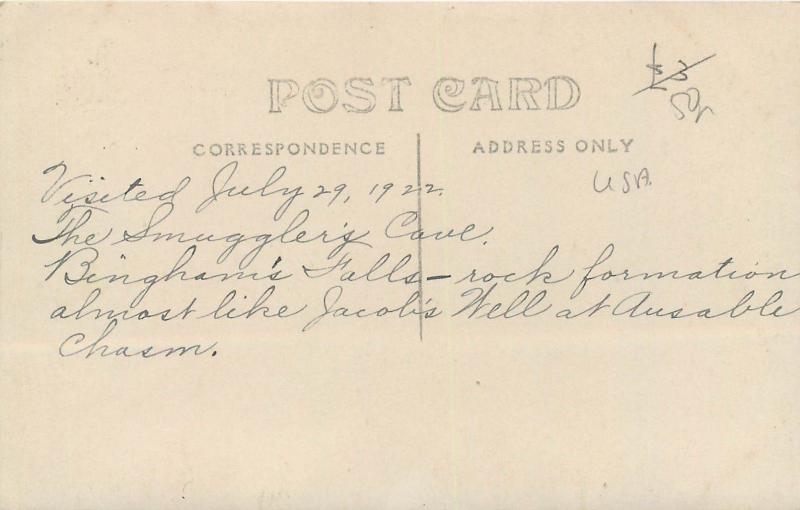 POST CARD
CORRESPONDENCE
ADDRESS ONLY
USA.
Visited July 29, 1922.
The Smuggler's Cave.
Bingham's Falls – rock formation
almost like Jacob's Well at Ausable
Chasm.